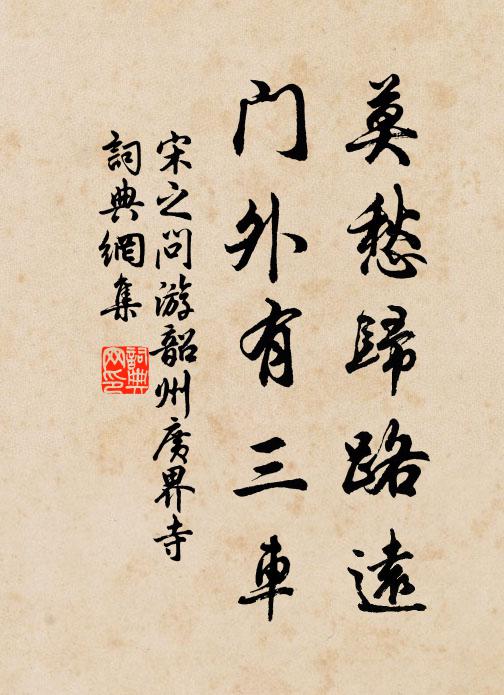 莫愁歸路遠
门外有三車
宋之问游韶州廣界寺
詞典網集
詞典
网印